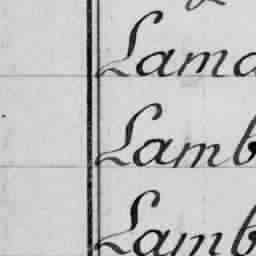 Lama
Lamb
Lamb